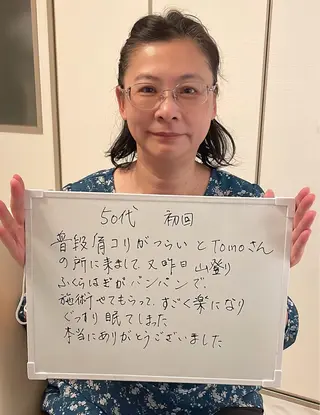 50代 初回
普段肩コリがつらいとTomoさん
の所に来まして、又昨日 山登り
ふくらはぎがパンパンで、
施術してもらって、すごく楽になり
ぐっすり眠てしまった
本当にありがとうございました